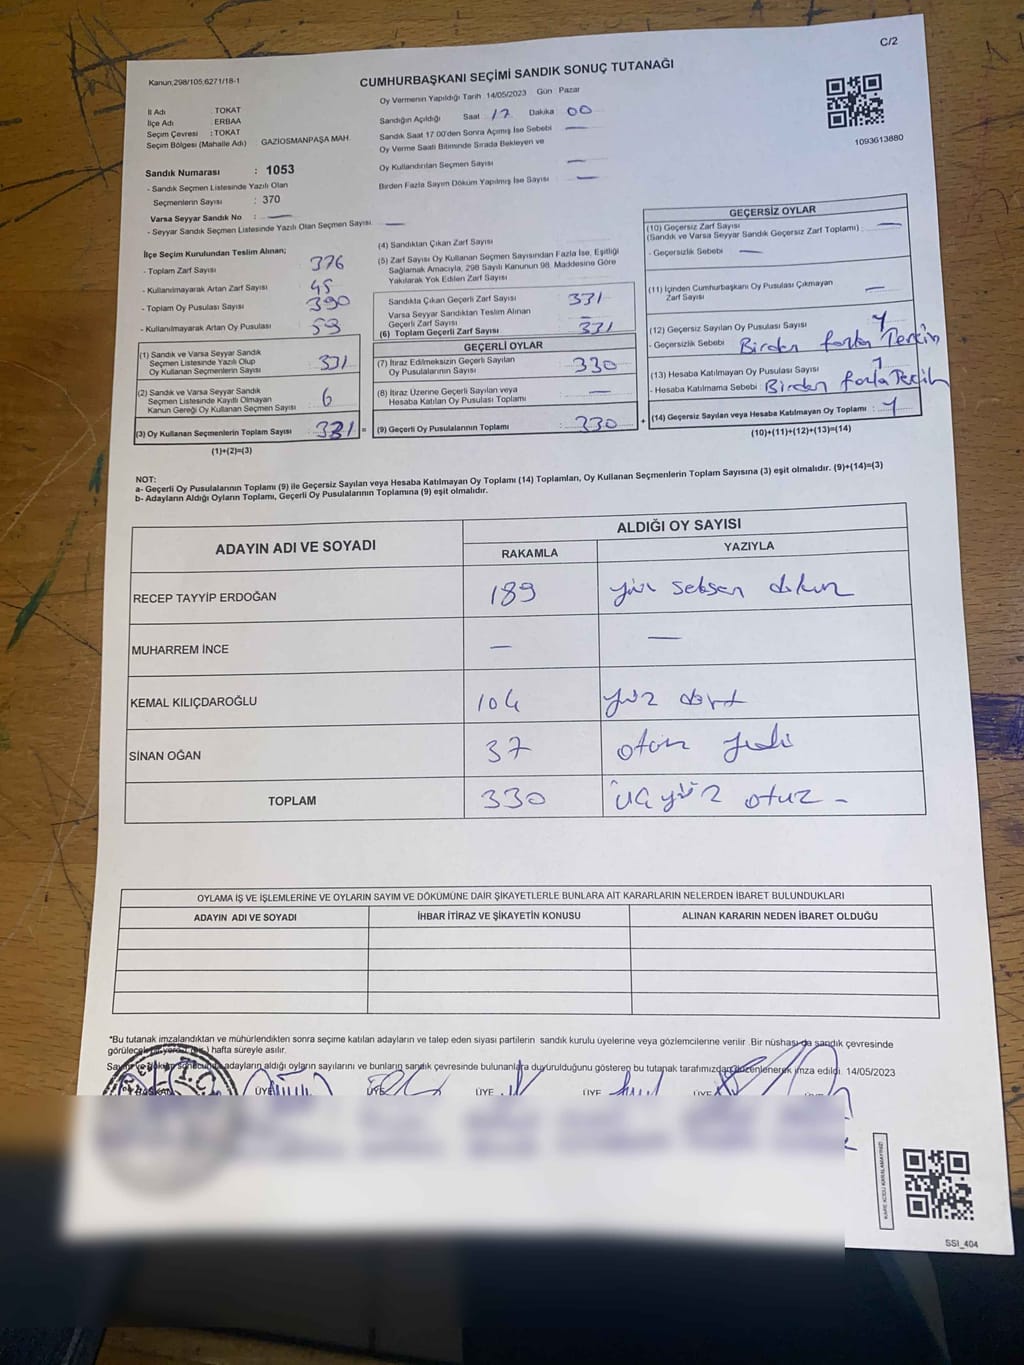 C/2
Kanun;298/105,6271/18-1
CUMHURBAŞKANI SEÇİMİ SANDIK SONUÇ TUTANAĞI
İl Adı : TOKAT
İlçe Adı : ERBAA
Seçim Çevresi : TOKAT
Seçim Bölgesi (Mahalle Adı) GAZİOSMANPAŞA MAH.
Sandık Numarası : 1053
- Sandık Seçmen Listesinde Yazılı Olan
Seçmenlerin Sayısı : 370
Varsa Seyyar Sandık No : —
- Seyyar Sandık Seçmen Listesinde Yazılı Olan Seçmen Sayısı —
Oy Vermenin Yapıldığı Tarih 14/05/2023 Gün Pazar
Sandığın Açıldığı Saat 17 Dakika 00
Sandık Saat 17:00'den Sonra Açımış İse Sebebi —
Oy Verme Saati Bitiminde Sırada Bekleyen ve
Oy Kullandırılan Seçmen Sayısı —
Birden Fazla Sayım Döküm Yapılmış İse Sayısı —
1093613880
İlçe Seçim Kurulundan Teslim Alınan;
- Toplam Zarf Sayısı 376
- Kullanılmayarak Artan Zarf Sayısı 45
- Toplam Oy Pusulası Sayısı 390
- Kullanılmayarak Artan Oy Pusulası 59
(1) Sandık ve Varsa Seyyar Sandık
Seçmen Listesinde Yazılı Olup
Oy Kullanan Seçmenlerin Sayısı 331
(2) Sandık ve Varsa Seyyar Sandık
Seçmen Listesinde Kayıtlı Olmayan
Kanun Gereği Oy Kullanan Seçmen Sayısı 6
(3) Oy Kullanan Seçmenlerin Toplam Sayısı 331 =
(1)+(2)=(3)
(4) Sandıktan Çıkan Zarf Sayısı
(5) Zarf Sayısı Oy Kullanan Seçmen Sayısından Fazla İse, Eşitliği
Sağlamak Amacıyla, 298 Sayılı Kanunun 98. Maddesine Göre
Yakılarak Yok Edilen Zarf Sayısı
Sandıkta Çıkan Geçerli Zarf Sayısı 331
Varsa Seyyar Sandıktan Teslim Alınan
Geçerli Zarf Sayısı —
(6) Toplam Geçerli Zarf Sayısı 331
GEÇERLİ OYLAR
(7) İtiraz Edilmeksizin Geçerli Sayılan
Oy Pusulasının Sayısı 330
(8) İtiraz Üzerine Geçerli Sayılan veya
Hesaba Katılan Oy Pusulası Toplamı —
(9) Geçerli Oy Pusulalarının Toplamı : 330 +
GEÇERSİZ OYLAR
(10) Geçersiz Zarf Sayısı
(Sandık ve Varsa Seyyar Sandık Geçersiz Zarf Toplamı) : —
- Geçersizlik Sebebi —
(11) İçinden Cumhurbaşkanı Oy Pusulası Çıkmayan
Zarf Sayısı —
(12) Geçersiz Sayılan Oy Pusulası Sayısı 1
- Geçersizlik Sebebi Birden fazla Tercih
(13) Hesaba Katılmayan Oy Pusulası Sayısı 1
- Hesaba Katılmama Sebebi Birden fazla Tercih
(14) Geçersiz Sayılan veya Hesaba Katılmayan Oy Toplamı : 1
(10)+(11)+(12)+(13)=(14)
NOT:
a- Geçerli Oy Pusulalarının Toplamı (9) ile Geçersiz Sayılan veya Hesaba Katılmayan Oy Toplamı (14) Toplamları, Oy Kullanan Seçmenlerin Toplam Sayısına (3) eşit olmalıdır. (9)+(14)=(3)
b- Adayların Aldığı Oyların Toplamı, Geçerli Oy Pusulalarının Toplamına (9) eşit olmalıdır.
ADAYIN ADI VE SOYADI
ALDIĞI OY SAYISI
RAKAMLA YAZIYLA
RECEP TAYYİP ERDOĞAN 189 yüz seksen dokuz
MUHARREM İNCE — —
KEMAL KILIÇDAROĞLU 104 yüz dört
SİNAN OĞAN 37 otuz yedi
TOPLAM 330 üç yüz otuz -
OYLAMA İŞ VE İŞLEMLERİNE VE OYLARIN SAYIM VE DÖKÜMÜNE DAİR ŞİKAYETLERLE BUNLARA AİT KARARLARIN NELERDEN İBARET BULUNDUKLARI
ADAYIN ADI VE SOYADI İHBAR İTİRAZ VE ŞİKAYETİN KONUSU ALINAN KARARIN NEDEN İBARET OLDUĞU
*Bu tutanak imzalandıktan ve mühürlendikten sonra seçime katılan adayların ve talep eden siyasi partilerin sandık kurulu üyelerine veya gözlemcilerine verilir. Bir nüshası da sandık çevresinde
görülecek bir hafta süreyle asılır.
adayların aldığı oyların sayılarını ve bunların sandık çevresinde bulunanlara duyurulduğunu gösteren bu tutanak tarafımızdan düzenlenerek imza edildi. 14/05/2023
T.C.
BAŞKAN ÜYE ÜYE ÜYE ÜYE ÜYE
KARE KODU KARALAMAYINIZ!
SSI_404